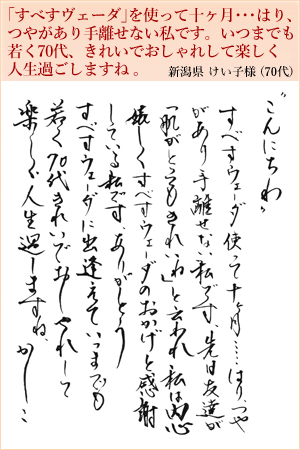 「すべすヴェーダ」を使って十ヶ月･･･はり、
つやがあり手離せない私です。いつまでも
若く70代、きれいでおしゃれして楽しく
人生過ごしますね 。
新潟県 けい子様（70代）
“こんにちわ”
すべすヴェーダ使って十ヶ月……はり、つや
があり手離せない私です、先日友達が
「肌がとてもきれいね」と云われ私は内心
嬉しくすべすヴェーダのおかげと感謝
している私です、ありがとう
すべすヴェーダに出逢えていつまでも
若く70代きれいでおしゃれして
楽しく人生過しますね、かしこ